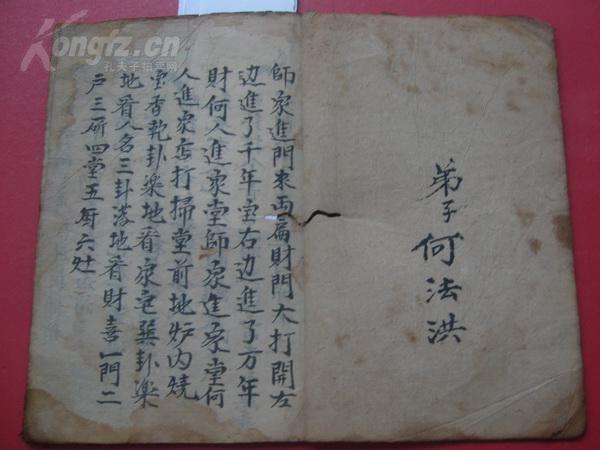 Kongfz.cn
孔夫子拍卖网
弟子何法洪
師家進門來両扇財門大打開左
边進了千年宝右边進了万年
財何人進家堂師家進家堂何
人進家店打掃堂前地炉内焼
宝香乾卦落地看家宅巽卦落
地看人名三卦落地看財喜一門二
户三研四堂五厨六灶